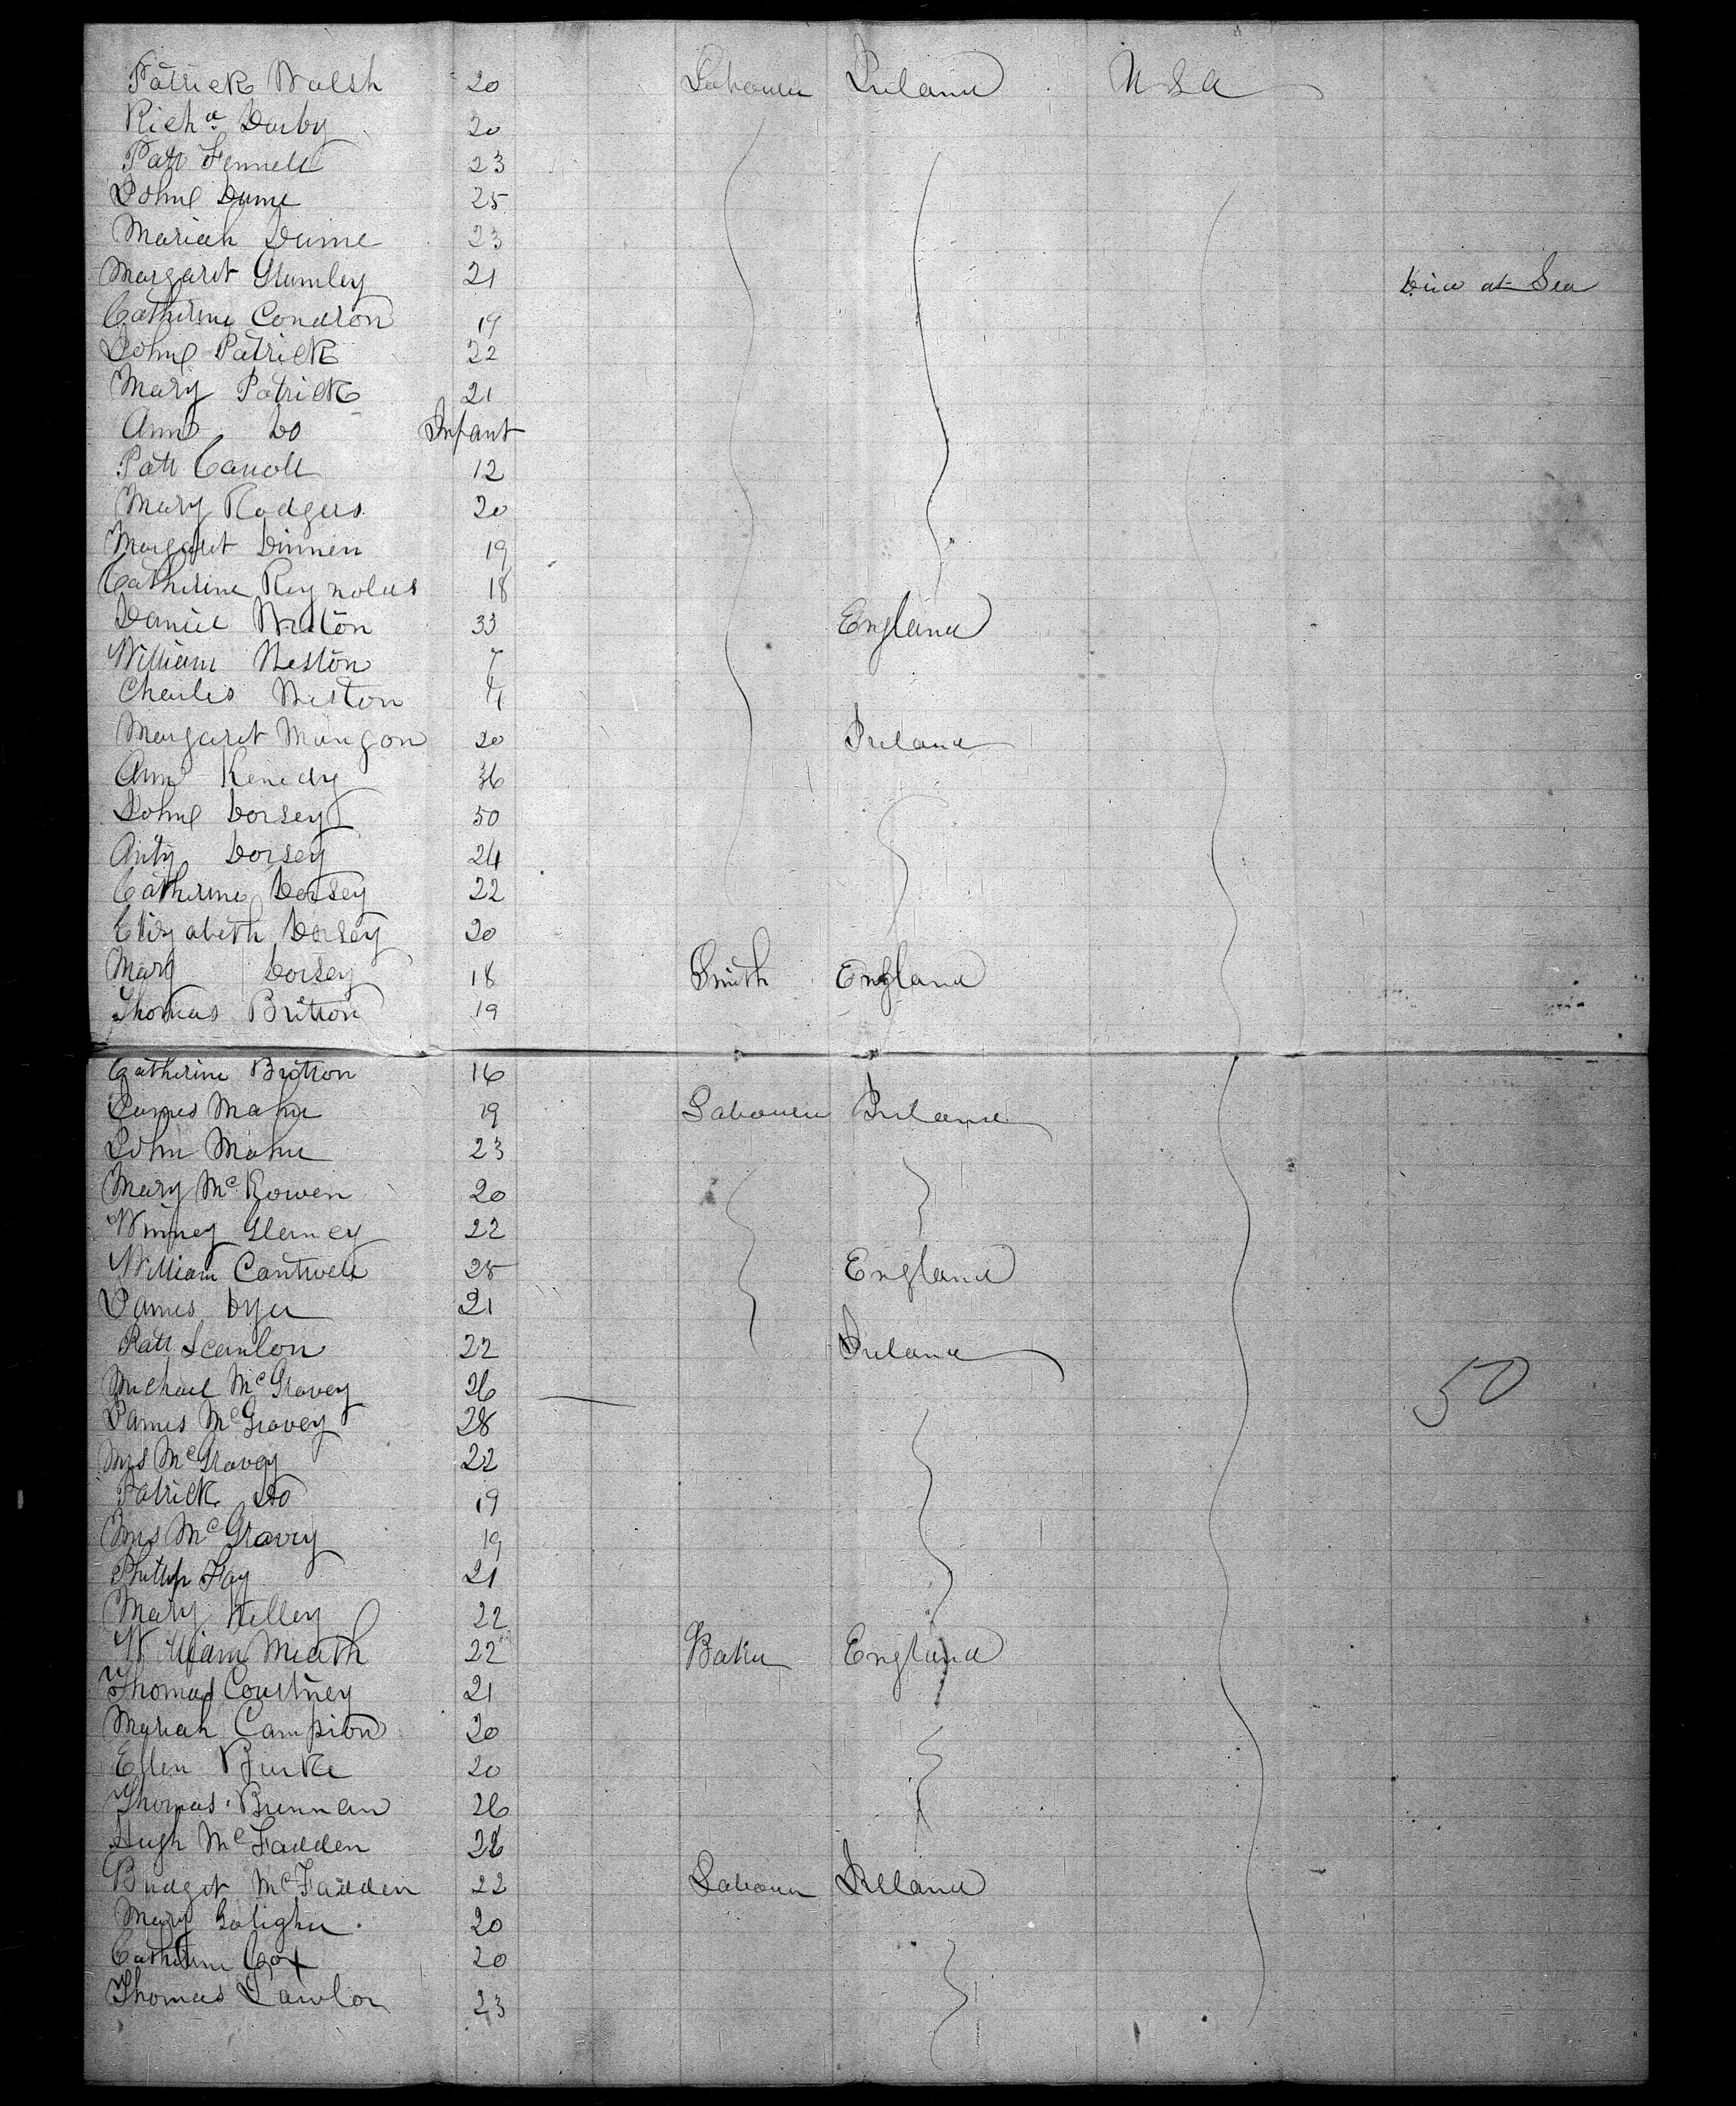 Patrick Walsh 20 Labourer Ireland U S A
Richd Darby 20
Patt Fennell 23
John Dunne 25
Mariah Dunne 23
Margaret Grumley 21 Died at Sea
Catherine Condron 19
John Patrick 22
Mary Patrick 21
Ann Do Infant
Patt Carroll 12
Mary Rodgers 20
Margaret Dinnen 19
Catherine Reynolds 18
Daniel Weston 33 England
William Weston 7
Charles Weston 4
Margaret Mangon 20 Ireland
Ann Kenedy 36
John Dorsey 50
Anty Dorsey 24
Catherine Dorsey 22
Elizabeth Dorsey 20
Mary Dorsey 18 Smith England
Thomas Britton 19
Catherine Britton 16
James Maher 19 Labourer Ireland
John Maher 23
Mary McKowen 20
Winney Glenney 22
William Cantwell 25 England
James Dyer 21
Patt Scanlon 22 Ireland
Michael McGravey 26 50
James McGravey 28
Mrs McGravey 22
Patrick Do 19
Mrs McGravey 19
Phillip Fay 21
Mary Kelley 22
William Meath 22 Baker England
Thomas Courtney 21
Mariah Campion 20
Ellen Burke 20
Thomas Brennan 26
Hugh McFadden 28
Bridget McFadden 22 Labourer Ireland
Mary 20
Catherine Cox 20
Thomas Lawlor 23